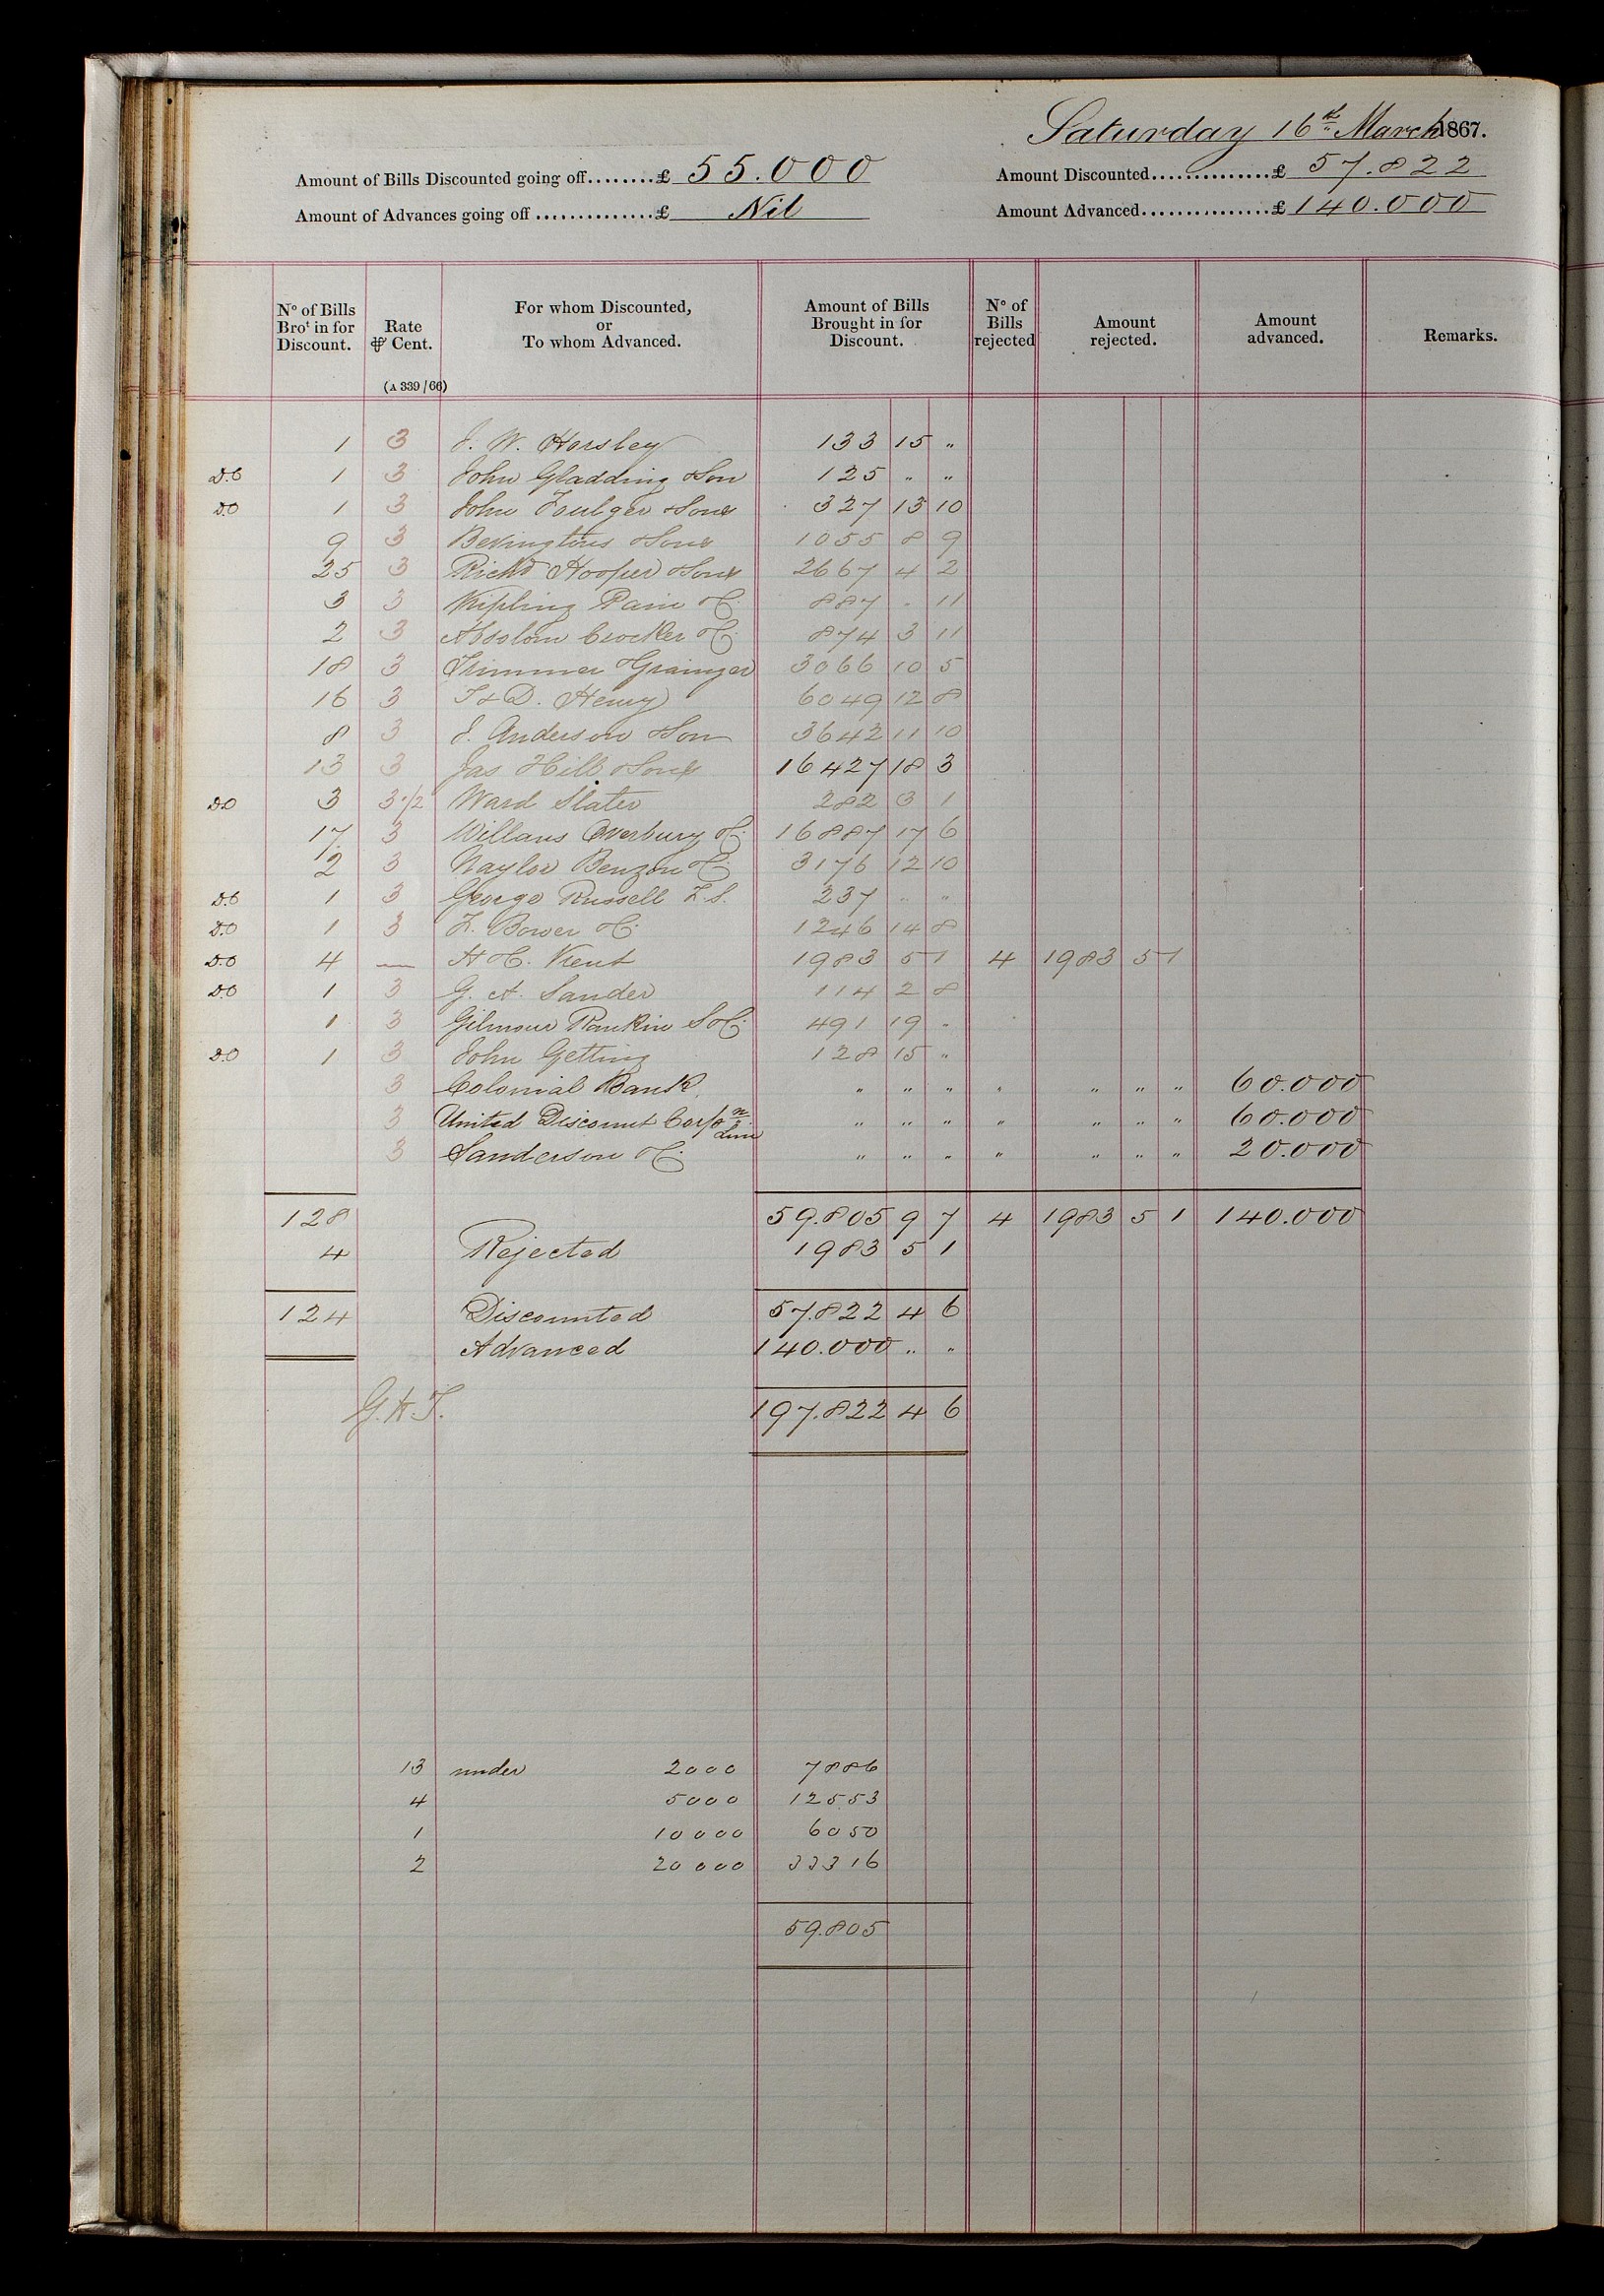 Saturday 16th March 1867.
Amount of Bills Discounted going off........£ 55.000 Amount Discounted...............£ 57.822
Amount of Advances going off ...............£ Nil Amount Advanced................£ 140.000
No of Bills Brot in for Discount. Rate ⅌ Cent. (A 339/66) For whom Discounted, or To whom Advanced. Amount of Bills Brought in for Discount. No of Bills rejected Amount rejected. Amount advanced. Remarks.
1 3 J. W. Horsley 133 15 "
D.O 1 3 John Gladding & Son 125 " "
D.O 1 3 John Foulger & Sons 327 13 10
9 3 Bevingtons & Sons 1055 8 9
25 3 Richd Hooper & Sons 2667 4 2
3 3 Kipling Pain & Co 887 " 11
2 3 Absolom Crocker & Co 874 3 11
18 3 Trimmer & Grainger 3066 10 5
16 3 T & D. Henry 6049 12 8
8 3 J. Anderson & Son 3642 11 10
13 3 Jas Hill & Sons 16427 18 3
D.O 3 3 1/2 Ward Slater 282 3 1
17 3 Willans Overbury & Co 16887 17 6
2 3 Naylor Benzon & Co 3176 12 10
D.O 1 3 George Russell F.S. 237 " "
D.O 1 3 F. Bower & Co 1246 14 8
D.O 4 — H & C. Kent 1983 5 1 4 1983 5 1
D.O 1 3 G. A. Sander 114 2 8
1 3 Gilmour Rankin S & Co 491 19 "
D.O 1 3 John Getting 128 15 "
3 Colonial Bank " " " " " " " 60.000
3 United Discount Corpn Lim " " " " " " " 60.000
3 Sanderson & Co " " " " " " " 20.000
128 59.805 9 7 4 1983 5 1 140.000
4 Rejected 1983 5 1
124 Discounted 57.822 4 6
Advanced 140.000 " "
G.H.T. 197.822 4 6
13 under 2000 7886
4 5000 12553
1 10000 6050
2 20000 33316
59.805